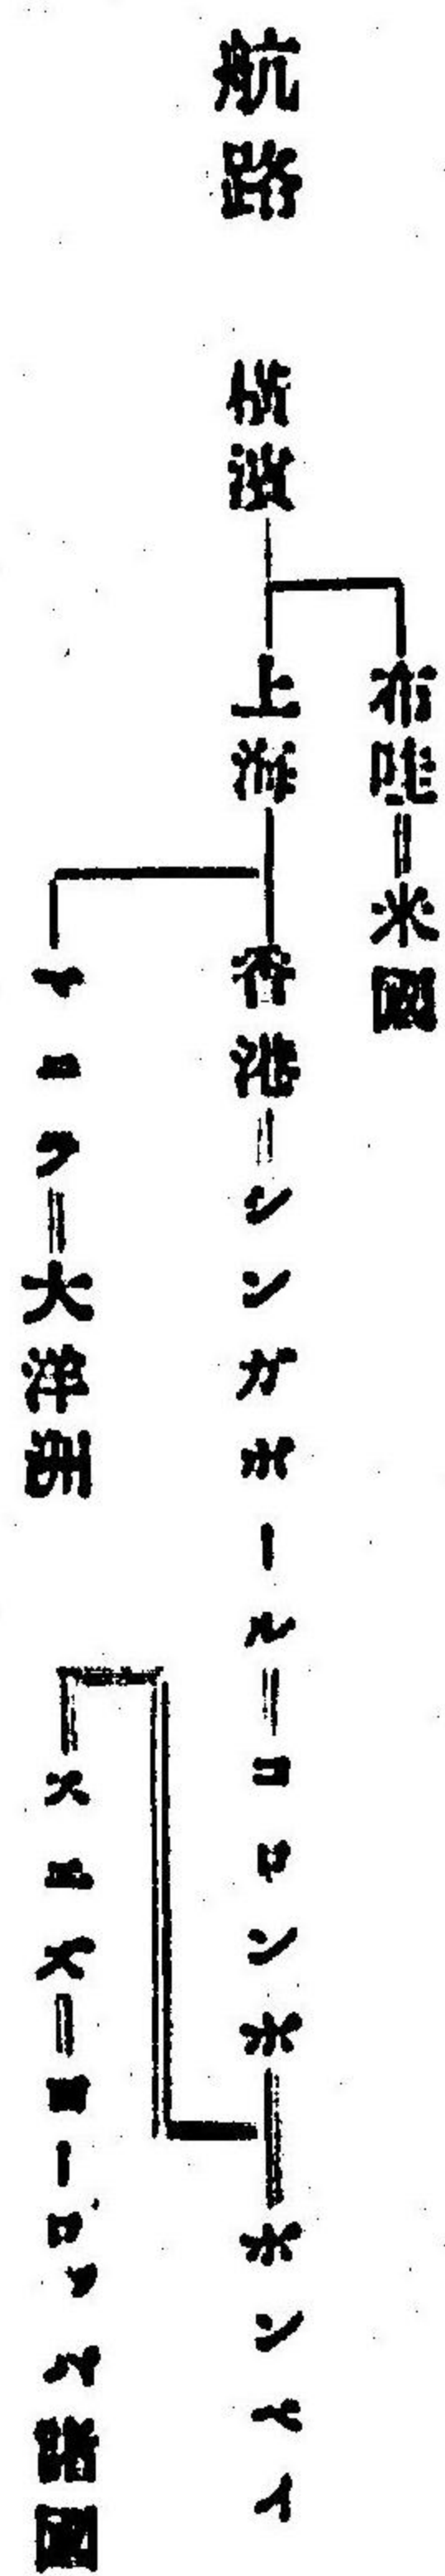 航路
横濱
布哇=米國
上海
香港=シンガポール=コロンボ=ボンベイ
マニラ=大洋洲
スエズ=ヨーロッパ諸國